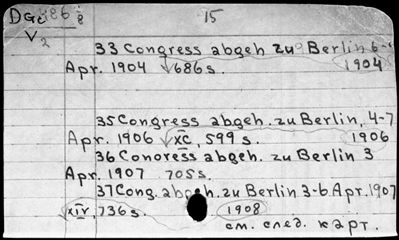 15
V2
33 Congress abgeh. zu Berlin 6-
Apr. 1904 √686 s. 1904
35 Congress abgeh. zu Berlin, 4-7
Apr. 1906 √XC, 599 s. 1906
36 Congress abgeh. zu Berlin 3
Apr. 1907 705 s.
37 Cong. abgeh. zu Berlin 3-6 Apr. 1907
XIV, 736 s. 1908
см. след. карт.